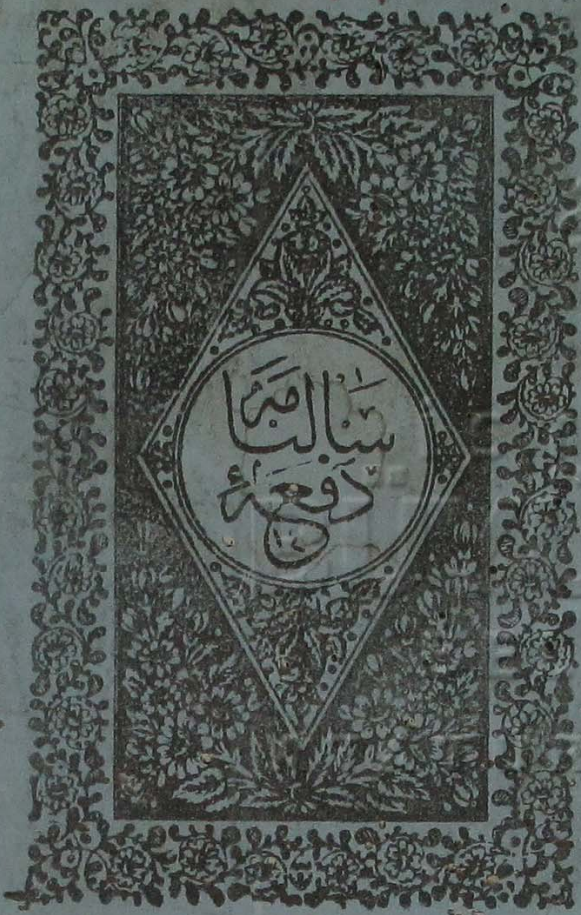 سالنامه
دفعهٔ